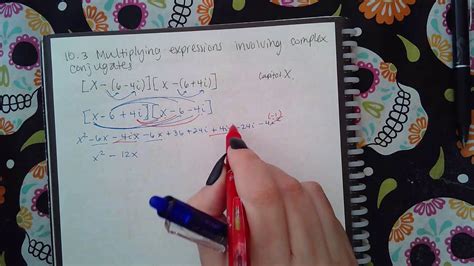 10.3 Multiplying expressions involving complex
conjugates
[x-(6-4i)][x-(6+4i)]
capitol X,
[x-6+4i][x-6-4i]
(-1)
x²-6x-4ix-6x+36+24i+4i
-24i-4
x²-12x